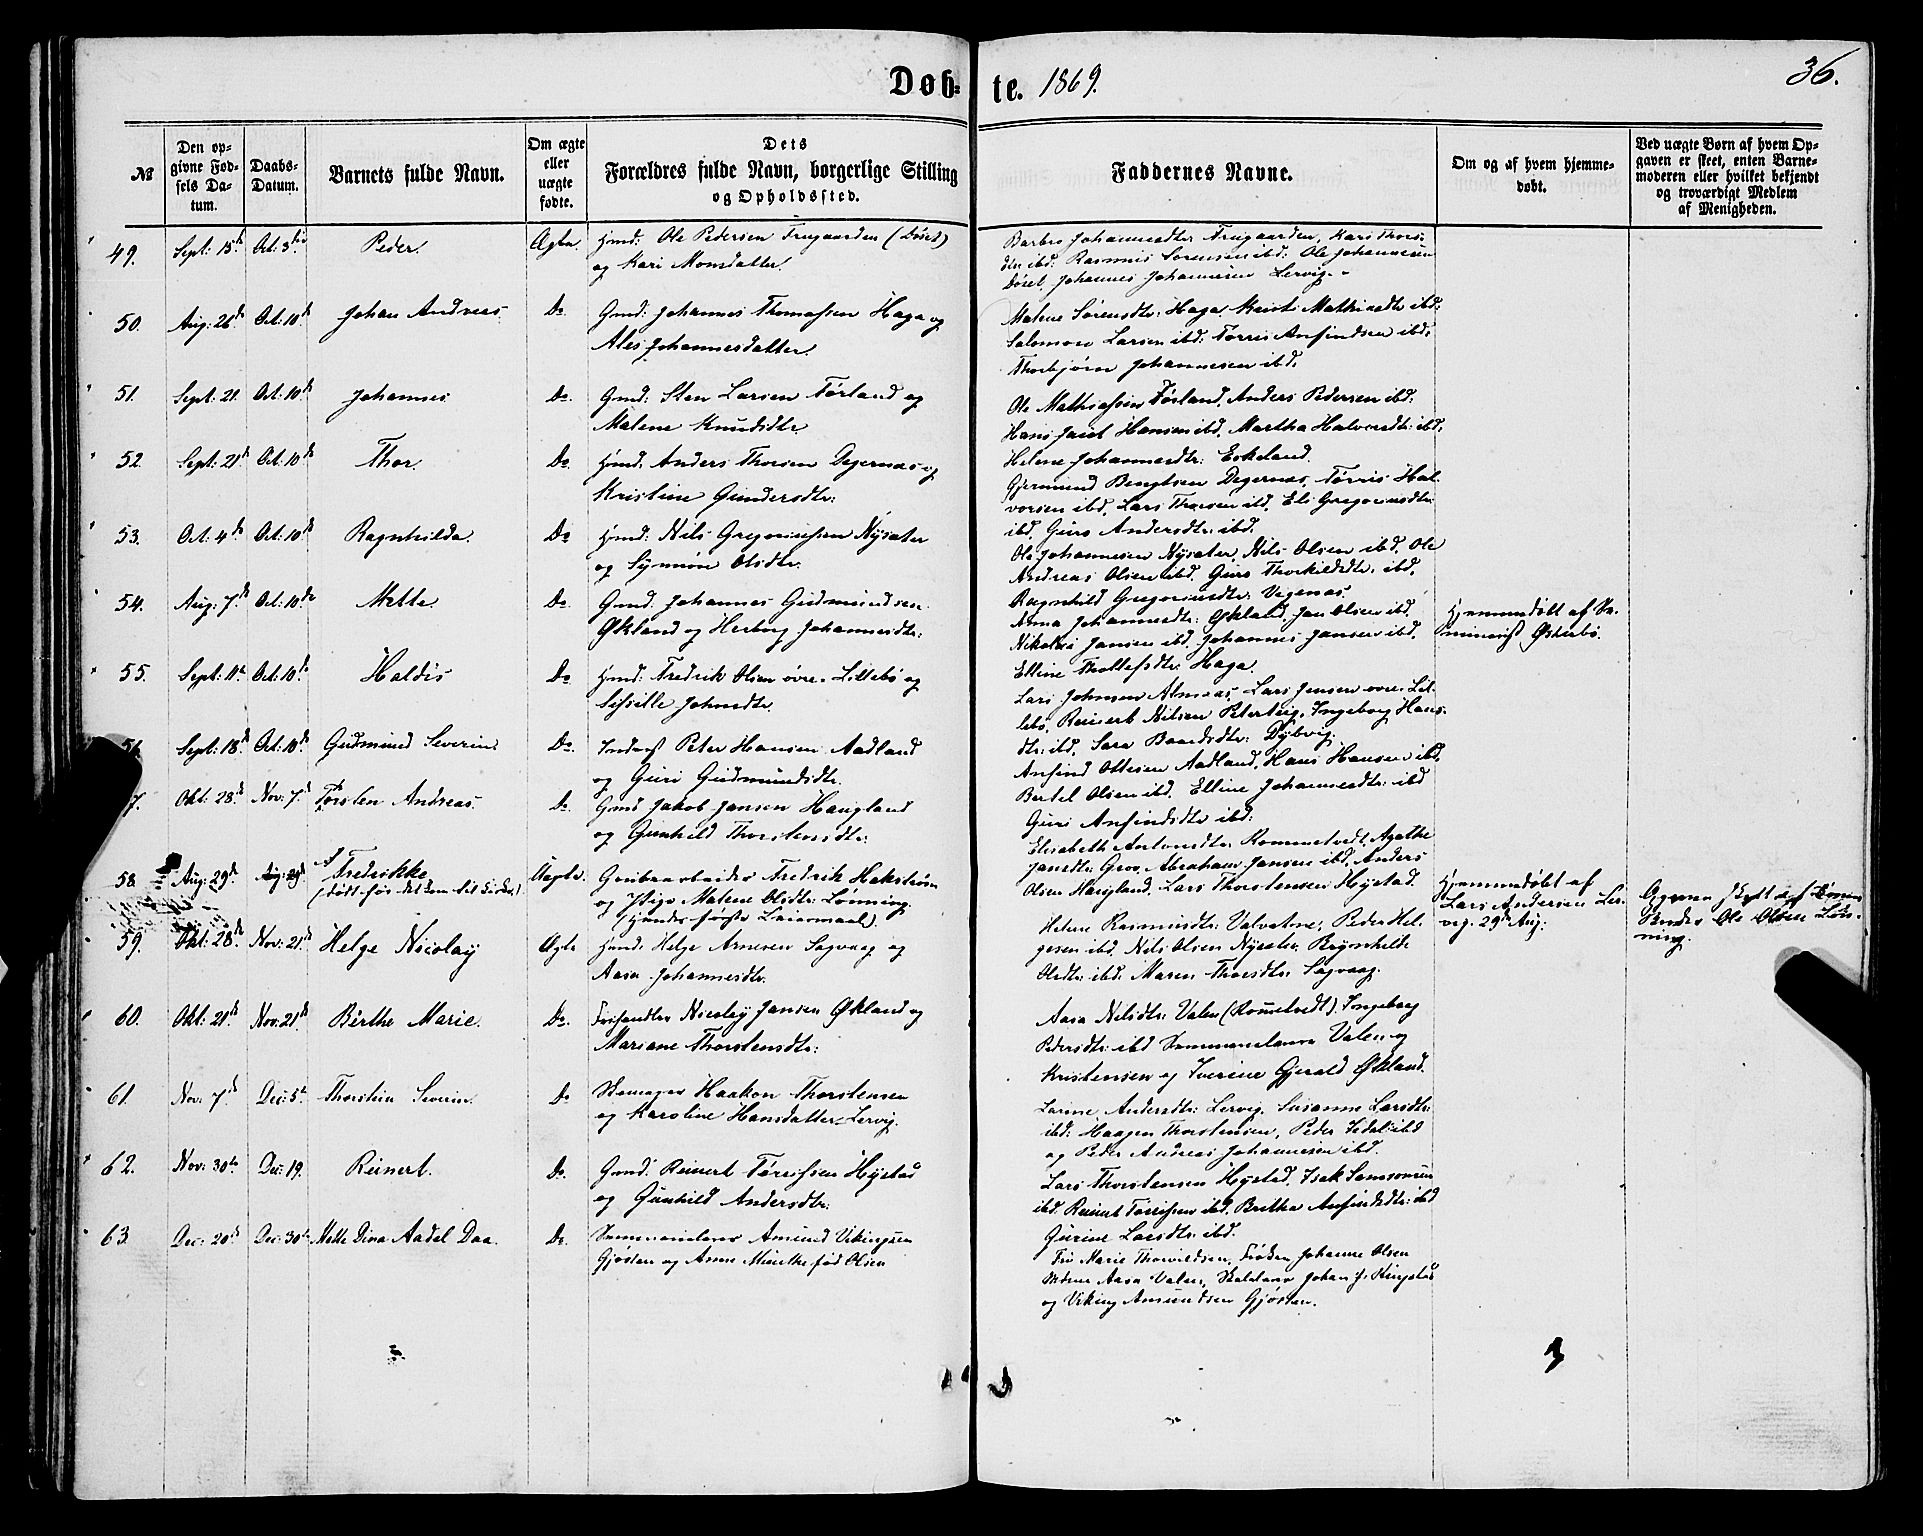 Døb- te. 1869. 36.
№
Den opgivne Fødsels Datum.
Daabs-Datum.
Barnets fulde Navn.
Om ægte eller uægte fødte.
Dets Forældres fulde Navn, borgerlige Stilling og Opholdssted.
Faddernes Navne.
Om og af hvem hjemmedøbt.
Ved uægte Børn af hvem Opgaven er skeet, enten Barnemoderen eller hvilket bekjendt og troværdigt Medlem af Menigheden.
49. Sept: 15de Oct: 3die Peder. Ægte Hmd: Ole Pedersen Frugaarden (Döset)
og Kari Monsdatter.
Barbro Johannesdtr Frugaarden, Kari Thors-
dtr ibd: Rasmus Sørensen ibd: Ole Johannesen
Döset, Johannes Johannesen Lervig.
50. Aug: 26de Oct: 10de Johan Andreas Do Gmd: Johannes Thomassen Haga og
Ales Johannesdatter.
Malene Sørensdtr: Haga, Kirsti Mathiasdtr ibd:
Salomon Larsen ibd: Tørris Anfindsen ibd:
Thorbjørn Johannesen ibd.
51. Sept: 21. Oct: 10de Johannes Do. Gmd: Sten Larsen Førland og
Malene Knudsdtr.
Ole Mathiassen Førland, Anders Pedersen ibd:
Hans Jacob Hansen ibd, Martha Halvorsdtr: ibd,
Helene Johannesdtr: Eskeland.
52. Sept: 21de Oct: 10de Thor. Do Hmd: Anders Thorsen Degernæs og
Kristine Gundersdtr:
Gjermund Bengtsen Degernæs, Tørris Hal-
vorsen ibd, Lars Thorsen ibd, Eli Gregoriusdtr:
ibd, Guro Andersdtr: ibd.
53. Oct: 4de Oct: 10de Ragnhilda. Do Hmd: Nils Gregoriussen Nysæter
og Synnøve Olsdtr.
Ole Johannesen Nysæter, Nils Olsen ibd, Ole
Andreas Olsen ibd. Guro Thorkildsdtr: ibd,
Ragnhild Gregoriusdtr: Vegenæs
54. Aug: 7de Oct: 10de Mette. Do. Gmd: Johannes Gudmundsen
Økland og Herborg Johannesdtr:
Anna Johannesdtr: Økland, Jan Olsen ibd,
Nikolai Jansen ibd, Johannes Jansen ibd,
Elline Thollefsdtr: Haga.
Hjemmedøbt af Se-
minarist Østerbö.
55. Sept: 11te Oct: 10de Haldis Do. Hmd: Fredrik Olsen övre Littlebö og
Sissille Johnsdtr.
Lars Johnsen Almaas, Lars Jensen övre Lit-
lebö, Reinert Nilsen Peterteig, Ingeborg Hans-
dtr: ibd, Sara Baardsdtr: Dybvig.
56. Sept: 18de Oct: 10de Gudmund Severin. Do. Inderst Peter Hansen Aadland
og Guri Gudmundsdtr.
Anfind Ottesen Aadland, Hans Hansen ibd,
Bertel Olsen ibd. Elline Johannesdtr: ibd
Guri Anfindsdtr ibd:
7. Okt: 28de Nov: 7de Torsten Andreas. Do. Gmd Jakob Jansen Haugland
og Gunhild Thorstensdtr:
Elisabeth Antonsdtr: Rommetvedt, Agathe
Jansdtr: Grov, Abraham Jansen ibd, Anders
Olsen Haugland, Lars Thorstensen Høystad.
58. Aug: 29de Aug: 29de Fredrikke Uægte. Grubearbeider Fredrik Hakström
(død før det kom til Kirke) og Pige Malene Olsdtr: Lønning.
(Hendes første Leiermaal).
Hjemmedøbt af
Lars Andersen Ler-
vig. 29de Aug:
Opgaven skeet af
Ole Olsen Løn-
ning.
59. Okt: 28de Nov: 21de Helge Nicolay Ægte Hmd: Helge Arnesen Sagvaag og
Aasa Johannesdtr.
Helene Rasmusdtr: Valvatne, Peder Hel-
gesen ibd, Nils Olsen Nysæter, Brynhild
Olsdtr: ibd: Maren Thorsdtr: Sagvaag.
60. Okt: 21de Nov: 21de Birthe Marie. Do. Nicolay Jansen Økland og
Mariane Thorstensdtr:
Aasa Nilsdtr: Valen (Rometvedt). Ingeborg
Pedersdtr: ibd Sømmandkone Valen og
Kristensen og Iverine Gjerald Økland.
61. Nov: 7de Dec: 5te Thorstein Severin. Do Skomager Haakon Thorstensen
og Karoline Hansdatter Lervig.
Larine Andersdtr: Lervig, Susanne Larsdtr:
ibd: Haagen Thorstensen, Peder ibd
og Peder Andreas Johannesen ibd.
62. Nov: 30te Dec: 19. Reinert. Do. Gmd: Reinert Tørrissen Høystad
og Gunhild Andersdtr:
Lars Thorstensen Høystad, Isak Samsonsen
ibd. Reinert Tørrissen ibd, Britha Anfindsdtr: ibd
Gurine Larsdtr: ibd.
63. Dec: 20de Dec: 30te Mette Dina Aadel Daa. Do. Amund Vikingsen
Gjøsten og Anne Mürthe fød Olsen
Fru Marie Thorvildsen, Frøken Johanne Olsen
Aasa Valen, Johan J. Ringstad
og Viking Amundsen Gjøsten.